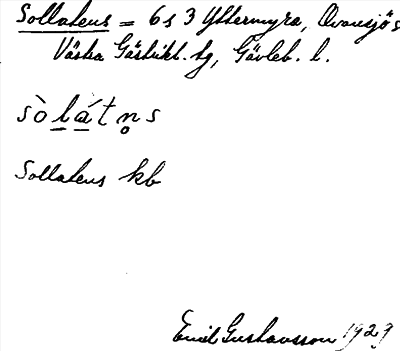 Sollatens = 6 s 3 Yttermyra, Ovansjö s
Västra Gästrikl. tg, Gävleb. l.
sòlátn̥s
Sollatens kb
Emil Gustavsson 1929